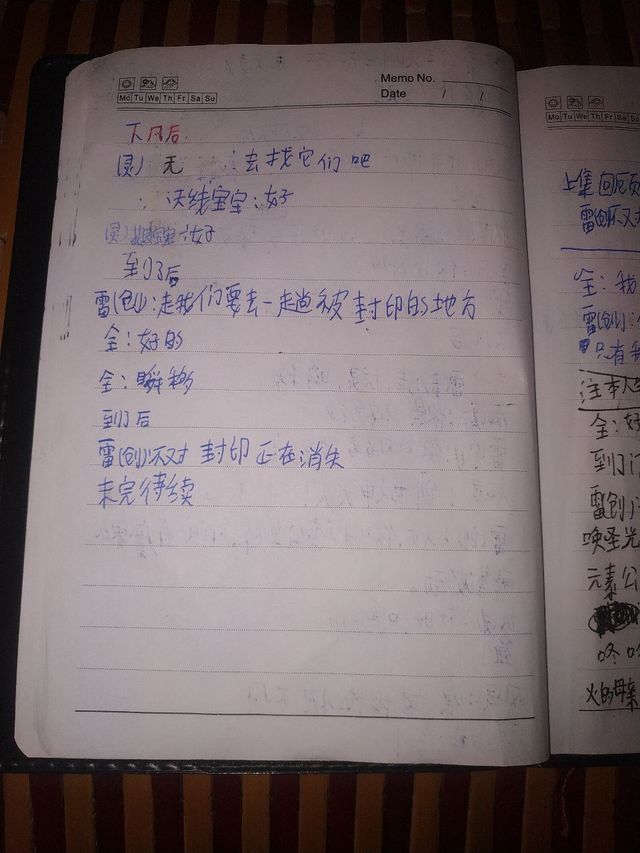 Memo No.
Date / /
Mo Tu We Th Fr Sa Su
下凡后
灵) 无 :去找它们吧
:天线宝宝:好
灵) :好
到了后
雷(创):走我们要去一趟被封印的地方
全:好的
全:瞬移
到了后
雷(创)坏对 封印正在消失
未完待续
Mo Tu We Th Fr Sa Su
上集回顾
雷(创)坏对
全:我
雷(创):
只有我
注本人
全:好
到了门
雷(创)
唤圣光
元素公
咚咚
火的母亲